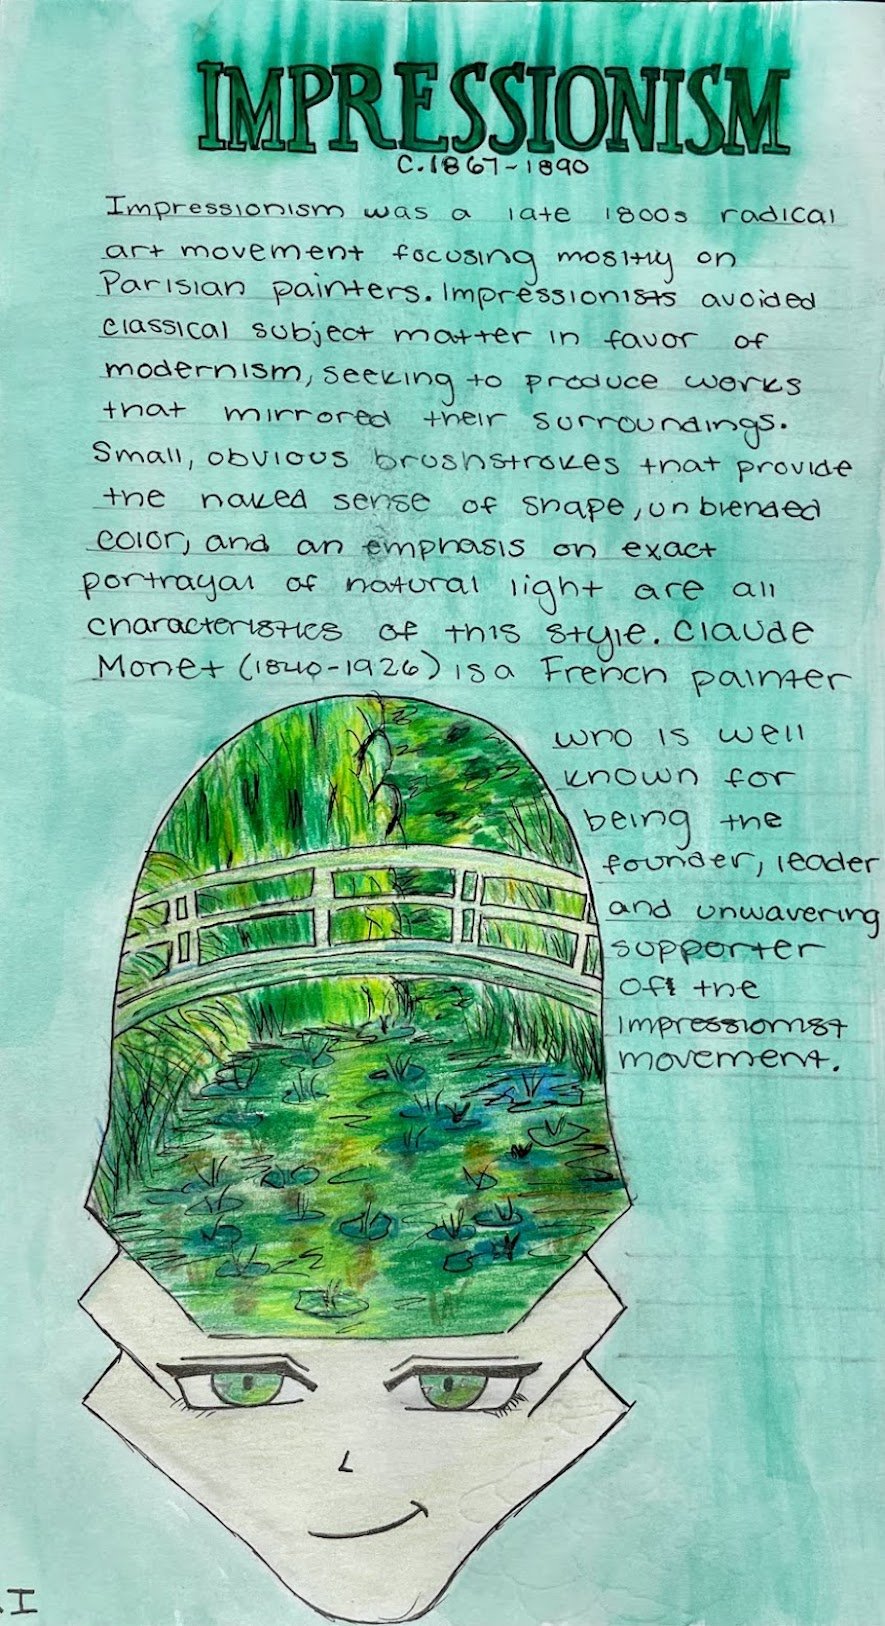 IMPRESSIONISM
C.1867-1890
Impressionism was a late 1800s radical
art movement focusing mostly on
Parisian painters. Impressionists avoided
classical subject matter in favor of
modernism, seeking to produce works
that mirrored their surroundings.
Small, obvious brushstrokes that provide
the naked sense of shape, unblended
color, and an emphasis on exact
portrayal of natural light are all
characteristics of this style. Claude
Monet (1840-1926) is a French painter
who is well
known for
being the
founder, leader
and unwavering
supporter
of the
impressionist
movement.
I